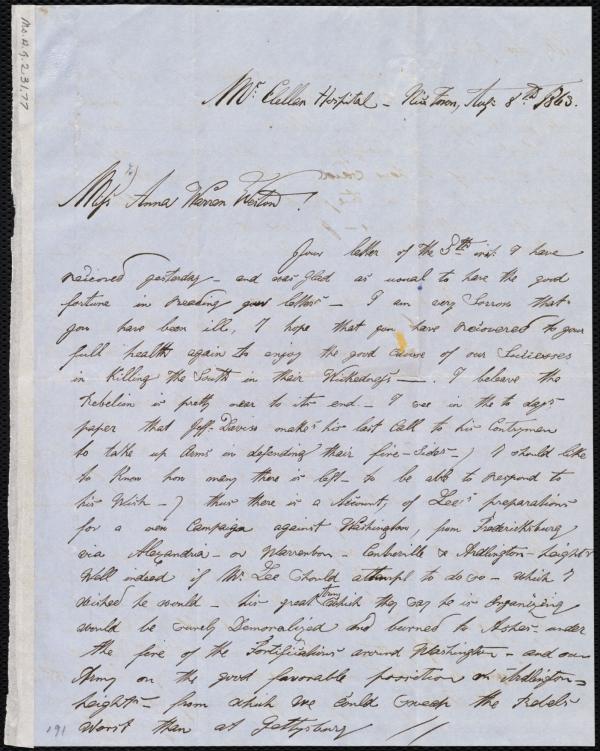 Ms.A.9.2.31.77
Mc Clellan Hospital - Nicetown, Aug. 8th 1863.
Miss Anna Warren Weston!
Your letter of the 5th inst. I have
recieved yesterday - and was glad as usual to have the good
fortune in Reading your letters - I am very Sorrow that
you have been ill, I hope that you have recovered to your
full health again to enjoy the good course of our Successes
in Killing the South in their Wickedness -. I beleave the
Rebelion is pretty near to its end - I see in the to day's
paper that Jeff. Daviss makes his last Call to his Contrymen
to take up Arms in defending their fire-Sides -) I should like
to Know how many there is left - to be able to respond to
his Wish -) thus there is a Account, of Lee's preparations
for a new Campaign against Washington, from Fredericksburg
via Alexandria - or Warrenton - Centerville & Ardlington-heights
Well indeed if Mr. Lee should attempt to do so - which I
wished he would - his great Army which they say he is Organizing
would be surely Demoralized and burned to Ashes under
the fire of the Fortifications around Washington - and our
Army on the good favorable possition on Ardlington=
heights - from which we could sweep the Rebels
worst than at Gettysburg //
191